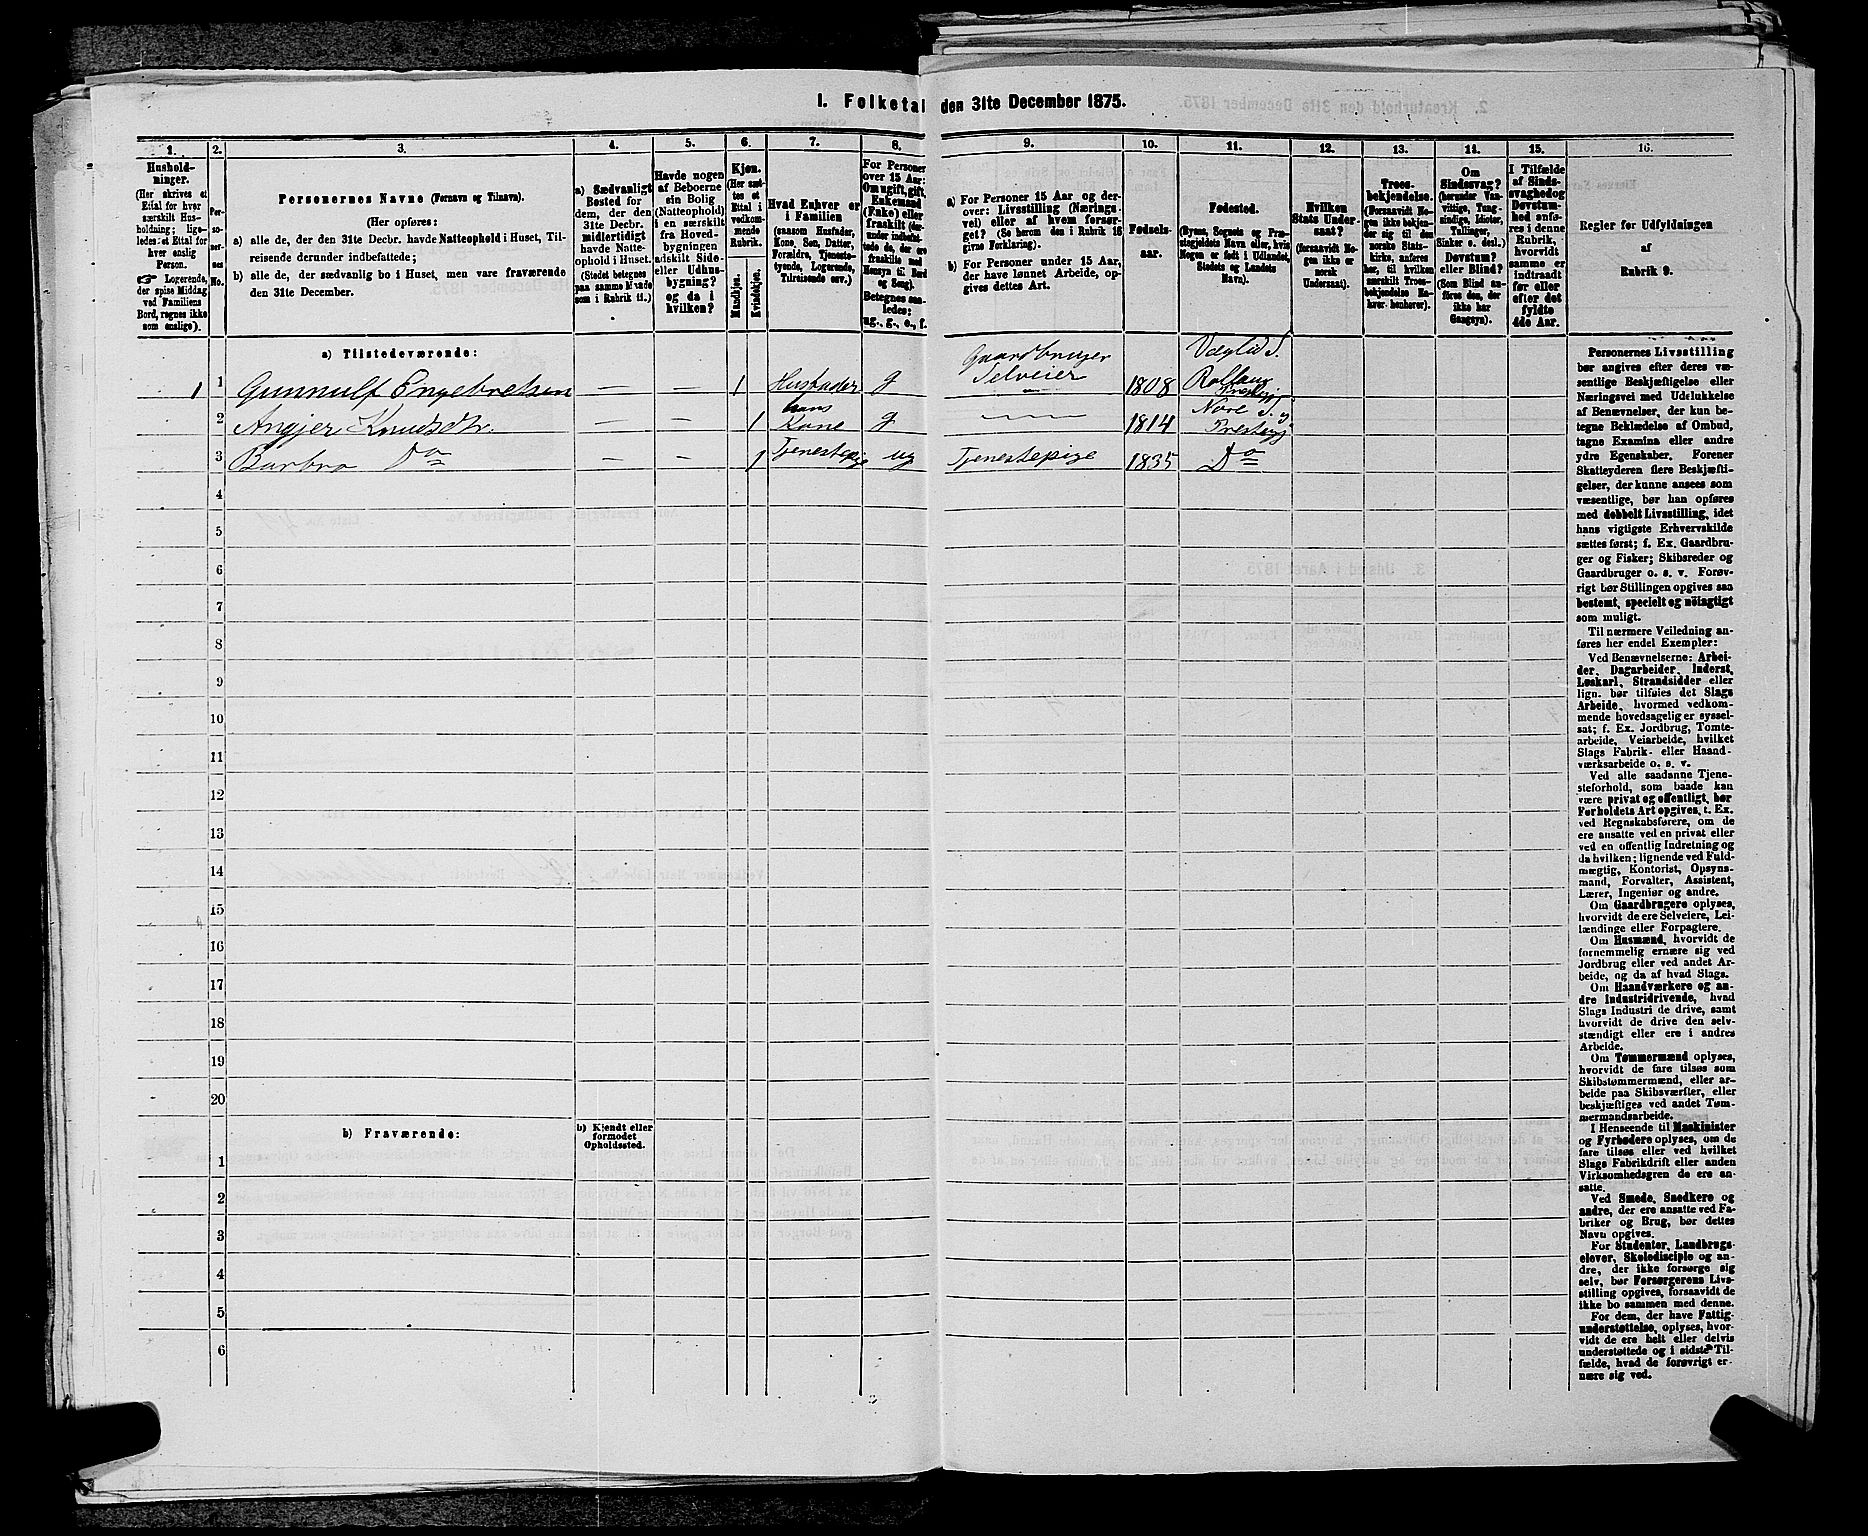 I. Folketal den 31te December 1875.
1. 2. 3. 4. 5. 6. 7. 8. 9. 10. 11. 12. 13. 14. 15. 16.
Hushold-
ninger.
(Her skrives et
Ettal for hver
særskilt Hus-
holdning; lige-
ledes et Ettal for
hver enslig
Person.
☞ Logerende,
der spise Middag
ved Familiens
Bord, regnes ikke
som enslige).
Per-
so-
ner-
nes
No.
Personernes Navne (Fornavn og Tilnavn).
(Her opføres:
a) alle de, der den 31te Decbr. havde Natteophold i Huset, Til-
reisende derunder indbefattede;
b) alle de, der sædvanlig bo i Huset, men vare fraværende
den 31te December.
a) Sædvanligt
Bosted for
dem, der den
31te Decbr.
midlertidigt
havde Natte-
ophold i Huset.
(Stedet betegnes
paa samme Maade
som i Rubrik 11.)
Havde nogen
af Beboerne
sin Bolig
(Natteophold)
i en særskilt
fra Hoved-
bygningen
adskilt Side-
eller Udhus-
bygning?
og da i
hvilken?
Kjøn.
(Her sæt-
tes et
Ettal i
vedkom-
mende
Rubrik.
Mandkjøn.
Kvindekjøn.
Hvad Enhver er
i Familien
(saasom Husfader,
Kone, Søn, Datter,
Forældre, Tjeneste-
tyende, Logerende,
Tilreisende osv.)
For Personer
over 15 Aar:
Om ugift, gift,
Enkemand
(Enke) eller
fraskilt (der-
under indbefat-
tede de, der ere
fraskilte med
Hensyn til Bord
og Seng).
Betegnes saa-
ledes:
ug., g., e., f.
a) For Personer 15 Aar og der-
over: Livsstilling (Nærings-
vei) eller af hvem forsør-
get? (Se herom den i Rubrik 16
givne Forklaring).
b) For Personer under 15 Aar,
der have lønnet Arbeide, op-
gives dettes Art.
Fødsels-
aar.
Fødested.
(Byens, Sognets og Præ-
stegjeldets Navn eller, hvis
Nogen er født i Udlandet,
Stedets og Landets
Navn).
Hvilken
Stats Under-
saat?
(forsaavidt No-
gen ikke er
norsk
Undersaat).
Troes-
bekjendelse.
(Forsaavidt No-
gen ikke bekjen-
der sig til den
norske Stats-
kirke, anføres
her, til hvilken
særskilt Troes-
bekjendelse En-
hver henhører).
Om
Sindssvag?
(herunder Van-
vittige, Tung-
sindige, Idioter,
Tullinger,
Sinker o. desl.)
Døvstum?
eller Blind?
(Som Blind an-
føres den, der
ikke har
Gangsyn).
I Tilfælde
af Sinds-
svaghed og
Døvstum-
hed anfø-
res i denne
Rubrik,
hvorvidt
samme er
indtraadt
før eller
efter det
fyldte
4de Aar.
Regler for Udfyldningen
af
Rubrik 9.
a) Tilstedeværende:
1 1 Gunnulf Engebretsen — — 1 Husfader g Gaardbruger Selveier 1808 Væglid S. Rollaug Prestegj
2 Angjer Knudsdtr. — — 1 hans Kone g — 1814 Nore S. og Prestegj
3 Barbro Do — — 1 Tjenestepige ug Tjenestepige 1835 Do
4
5
6
7
8
9
10
11
12
13
14
15
16
17
18
19
20
b) Fraværende:
b) Kjendt eller
formodet
Opholdssted.
1
2
3
4
5
6
Personernes Livsstilling
bør angives efter deres væ-
sentlige Beskjæftigelse eller
Næringsvei med Udelukkelse
af Benævnelser, der kun be-
tegne Beklædelse af Ombud,
tagne Examina eller andre
ydre Egenskaber. Forener
Skatteyderen flere Beskjæfti-
gelser, der kunne ansees som
væsentlige, bør han opføres
med dobbelt Livsstilling, idet
hans vigtigste Erhvervskilde
sættes først; f. Ex. Gaardbru-
ger og Fisker; Skibsreder og
Gaardbruger o. s. v. Forøv-
rigt bør Stillingen opgives saa
bestemt, specielt og nøiagtigt
som muligt.
Til nærmere Veiledning an-
føres her endel Exempler:
Ved Benævnelserne: Arbei-
der, Dagarbeider, Inderst,
Løskarl, Strandsidder eller
lign. bør tilføies det Slags
Arbeide, hvormed vedkom-
mende hovedsagelig er syssel-
sat; f. Ex. Jordbrug, Tomte-
arbeide, Veiarbeide, hvilket
Slags Fabrik- eller Haand-
værksarbeide o. s. v.
Ved alle saadanne Tjene-
steforhold, som baade kan
være privat og offentligt, bør
Forholdets Art opgives, t. Ex.
ved Regnskabsførere, om de
ere ansatte ved en privat eller
ved en offentlig Indretning og
da hvilken; lignende ved Fuld-
mægtig, Kontorist, Opsyns-
mand, Forvalter, Assistent,
Lærer, Ingeniør og andre.
Om Gaardbrugere oplyses,
hvorvidt de ere Selveiere, Lei-
lændinge eller Forpagtere.
Om Husmænd, hvorvidt de
fornemmelig ernære sig ved
Jordbrug eller ved andet Ar-
beide, og da af hvad Slags.
Om Haandværkere og an-
dre Industridrivende, hvad
Slags Industri de drive, samt
hvorvidt de drive den selv-
stændigt eller ere i andres
Arbeide.
Om Tømmermænd oplyses,
hvorvidt de fare tilsøs som
Skibstømmermænd, eller ar-
beide paa Skibsværfter, eller
beskjæftiges ved andet Tøm-
mermandsarbeide.
I Henseende til Maskinister
og Fyrbødere oplyses, om de
fare tilsøs eller ved hvilket
Slags Fabrikdrift eller anden
Virksomhedsgren de ere an-
satte.
Ved Smede, Snedkere og
andre, der ere ansatte ved Fa-
briker og Brug, bør dettes
Navn opgives.
For Studenter, Landbrugs-
elever, Skoledisciple og an-
dre, der ikke forsørge sig
selv, bør Forsørgerens Livs-
stilling opgives, forsaavidt de
ikke bo sammen med denne.
For dem, der have Fattig-
understøttelse, oplyses, hvor-
vidt de ere helt eller delvis
understøttede og i sidste Til-
fælde, hvad de forøvrigt er-
nære sig ved.